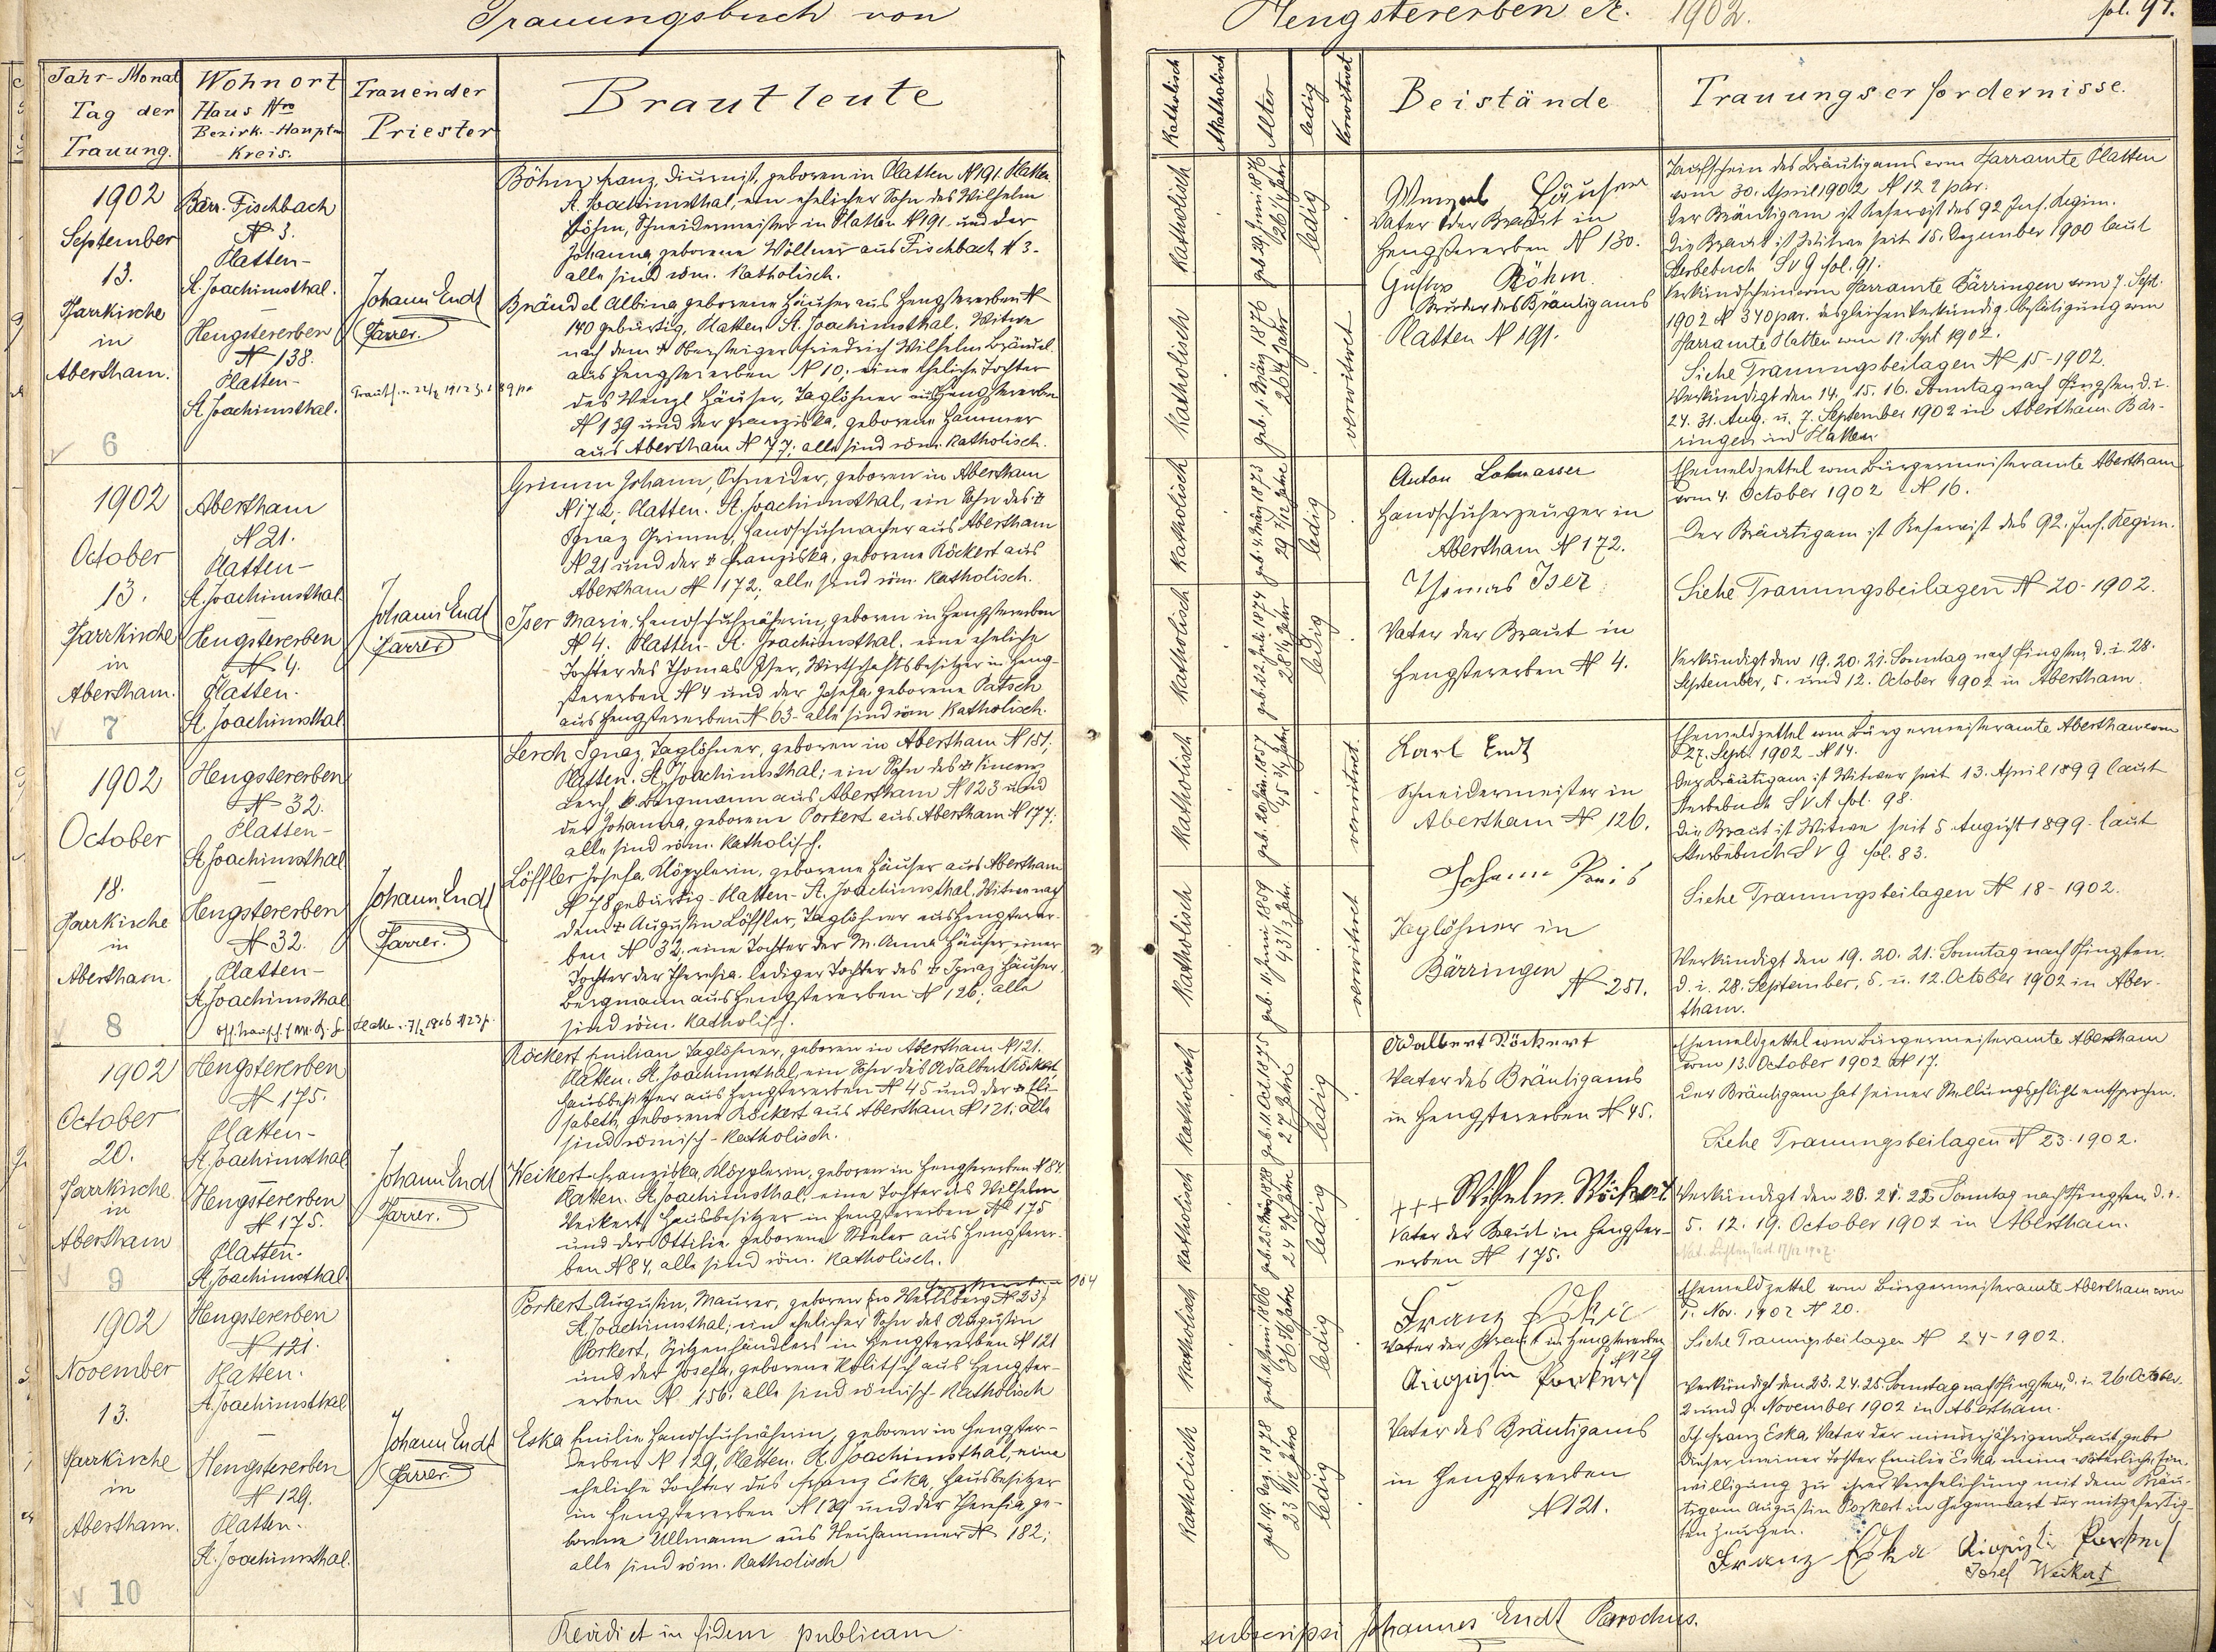 Trauungsbuch von
Jahr-Monat
Tag der
Trauung.
Wohnort
Haus Nro
Bezirk.-Haupt-
Kreis.
Trauender
Priester
Brautleute
1902
September
13.
Pfarrkirche
in
Abertham.
6
Bärr. Fischbach
N 3.
Platten-
St. Joachimsthal.
Hengstererben
N 138.
Platten-
St. Joachimsthal.
Johann Endt
Pfarrer.
Böhm Franz, Diurnist, geboren in Platten N 191. Platten
St. Joachimsthal, ein ehelicher Sohn des Wilhelm
Böhm, Schneidermeister in Platten N 191 und der
Johanna, geborene Wöllner aus Fischbach N 3-
alle sind röm. katholisch.
Brändel Albina geborene Häuser aus Hengstererben N
140 gebürtig, Platten St. Joachimsthal. Witwe
nach dem † Obersteiger Friedrich Wilhelm Brändel
aus Hengstererben N 10; eine eheliche Tochter
des Wenzl Häuser, Taglöhner aus Hengstererben
N 139 und der Franziska, geborene Hammer
aus Abertham N 77; alle sind röm. katholisch.
1902
October
13.
Pfarrkirche
in
Abertham.
7
Abertham
N 21.
Platten-
St. Joachimsthal.
Hengstererben
N 4.
Platten.
St. Joachimsthal
Johann Endt
Pfarrer
Grimm Johann, Schneider, geboren in Abertham
N 172. Platten. St. Joachimsthal, ein Sohn des †
Ignaz Grimm, Handschuhmacher aus Abertham
N 21 und der † Franziska, geborene Röckert aus
Abertham N 172; alle sind röm. katholisch.
Iser Marie, Handschuhnäherin, geboren in Hengstererben
N 4. Platten-St. Joachimsthal. eine eheliche
Tochter des Thomas Iser, Wirtschaftsbesitzer in Heng-
stererben N 4 und der Josefa, geborene Patsch
aus Hengstererben N 63- alle sind röm. katholisch.
1902
October
18.
Pfarrkirche
in
Abertham.
8
Hengstererben
N 32.
Platten-
St. Joachimsthal
Hengstererben
N 32.
Platten-
St. Joachimsthal
Johann Endt
Pfarrer.
Lerch Ignaz Taglöhner, geboren in Abertham N 151;
Platten. St. Joachimsthal; ein Sohn des †
Lerch, Bergmann aus Abertham N 123 und
der Johanna, geborene Porkert aus Abertham N 177;
alle sind röm. katholisch.
Löffler Josefa, Klöpplerin, geborene Häuser aus Abertham
N 78 gebürtig-Platten-St. Joachimsthal, Witwe nach
dem † Augustin Löffler, Taglöhner aus Hengsterer-
ben N 32; eine Tochter der M. Anna Häuser einer
Tochter der Theresia. lediger Tochter des † Ignaz Häuser,
Bergmann aus Hengstererben N 126; alle
sind röm. katholisch.
1902
October
20.
Pfarrkirche
in
Abertham
9
Hengstererben
N 175.
Platten-
St. Joachimsthal
Hengstererben
N 175.
Platten.
St. Joachimsthal.
Johann Endt
Pfarrer.
Röckert Emilian Taglöhner, geboren in Abertham N 121.
Platten. St. Joachimsthal, ein Sohn des Adalbert Röckert,
Hausbesitzer aus Hengstererben N 45 und der † Eli-
sabeth, geborene Röckert aus Abertham N 121; alle
sind römisch-katholisch.
Weikert Franziska, Klöpplerin, geboren in Hengstererben N 84.
Platten. St. Joachimsthal, eine Tochter des Wilhelm
Weikert, Hausbesitzer in Hengstererben N 175
und der Ottilie geborene aus Hengsterer-
ben N 84, alle sind röm. katholisch.
1902
November
13.
Pfarrkirche
in
Abertham.
10
Hengstererben
N 121.
Platten.
St. Joachimsthal
Hengstererben
N 129.
Platten.
St. Joachimsthal.
Johann Endt
Pfarrer.
Porkert Augustin, Maurer, geboren in N 23;
St. Joachimsthal; ein ehelicher Sohn des Augustin
Porkert, Spitzenhändlers in Hengstererben N 121
und der Josefa, geborene Kolitsch aus Hengster-
erben N. 156; alle sind römisch-katholisch
Eska Emilie Handschuhnäherin, geboren in Hengster-
erben N 129, Platten. St. Joachimsthal, eine
eheliche Tochter des Franz Eska, Hausbesitzer
in Hengstererben N 129 und der Theresia, ge-
borene Ullmann aus Neuhammer N 182;
alle sind röm. katholisch
Revidiet in fidem publicam
Hengstererben et. 1902.
fol. 97.
Katholisch
Akatholisch
Alter
ledig
verwitwet
Beistände
Trauungserfordernisse.
Katholisch
geb. 29. Juni 1876
26 1/4 Jahr
ledig
Katholisch
geb. 1. März 1876
26 1/2 Jahr
verwitwet
Wenzl Häuser
Vater der Braut in
Hengstererben N 130.
Gustav Böhm
Bruder des Bräutigams
Platten N 191.
Taufschein des Bräutigams vom Pfarramte Platten
vom 30. April 1902 N 122 par.
Der Bräutigam ist Reservist des 92 Inf. Regim.
Die Braut ist Witwe seit 15. Dezember 1900 laut
Sterbebuch S V 9 fol. 91.
Verkündschein vom Pfarramte Bärringen vom 7. Sept.
1902 N 340 par. desgleichen Verkündig. Bestätigung vom
Pfarramte Platten vom 17. Sept 1902.
Siehe Trauungsbeilagen N 15-1902.
Verkündigt den 14. 15. 16. Sonntag nach Pfingsten d. i.
24. 31. Aug. u. 7. September 1902 in Abertham. Bär-
ringen und Platten
Katholisch
geb. 4. März 1873
29 7/12 Jahre
ledig
Katholisch
geb. 22. Juli 1874
28 1/4 Jahr
ledig
Anton Lohwasser
Handschuherzeuger in
Abertham N 172.
Thomas Iser
Vater der Braut in
Hengstererben N 4.
Ehemeldzettel vom Bürgermeisteramte Abertham
vom 4. October 1902 - N 16.
Der Bräutigam ist Reservist des 92. Inf. Regim.
Siehe Trauungsbeilagen N 20-1902.
Verkündigt den 19. 20. 21. Sonntag nach Pfingsten, d. i. 28.
September, 5. und 12. October 1902 in Abertham
Katholisch
geb. 20. Jän. 1857
45 3/4 Jahr
verwitwet
Katholisch
geb. 11. Juni 1859
43 1/3 Jahr
verwitwet
Karl Endt
Schneidermeister in
Abertham N 126.
Johann
Taglöhner in
Bärringen
N 251.
Ehemeldzettel vom Bürgermeisteramte Abertham vom
27. Sept. 1902 - N 14.
Der Bräutigam ist Witwer seit 13. April 1899 laut
Sterbebuch S V A fol. 98.
Die Braut ist Witwe seit 5 August 1899 - laut
Sterbebuch S V 9 fol. 83.
Siehe Trauungsbeilagen N 18-1902.
Verkündigt den 19. 20. 21. Sonntag nach Pfingsten
d. i. 28. September, 5. u. 12. October 1902 in Aber-
tham.
Katholisch
geb. 11. Oct. 1875
27 Jahre
ledig
Katholisch
geb. 25. März 1878
ledig
Adalbert Röckert
Vater des Bräutigams
in Hengstererben N 45.
+++ Wilhelm
Vater der Braut in Hengster-
erben N 175.
Ehemeldzettel vom Bürgermeisteramte Abertham
vom 13. October 1902 N 17.
Der Bräutigam hat seiner Stellungspflicht entsprochen.
Siehe Trauungsbeilagen N 23-1902.
Verkündigt den 20. 21. 22. Sonntag nach Pfingsten, d. i.
5. 12. 19. October 1902 in Abertham.
Katholisch
geb. 11. Juni 1866
ledig
Katholisch
geb. 19. Dez. 1878
23 11/12 Jahre
ledig
Franz Eska
Vater der Braut in Hengstererben
N 129
Augustin Porkert
Vater des Bräutigams
in Hengstererben
N 121.
Ehemeldzettel vom Bürgermeisteramte Abertham vom
1. Nov. 1902 N 20.
Siehe Trauungsbeilagen N 24-1902.
Verkündigt den 23. 24. 25. Sonntag nach Pfingsten, d. i. 26. October
2. und 9. November 1902 in Abertham.
Ich Franz Eska Vater der minderjährigen Braut, gebe
dieser meiner Tochter Emilie Eska meine väterliche Ein-
willigung zur ihrer Verehelichung mit dem Bräu-
tigam Augustin Porkert in Gegenwart der mitgefertig-
ten Zeugen.
Franz Eska Augustin Porkert
Josef Weikert
subscripsi Johannes Endt Parochus.